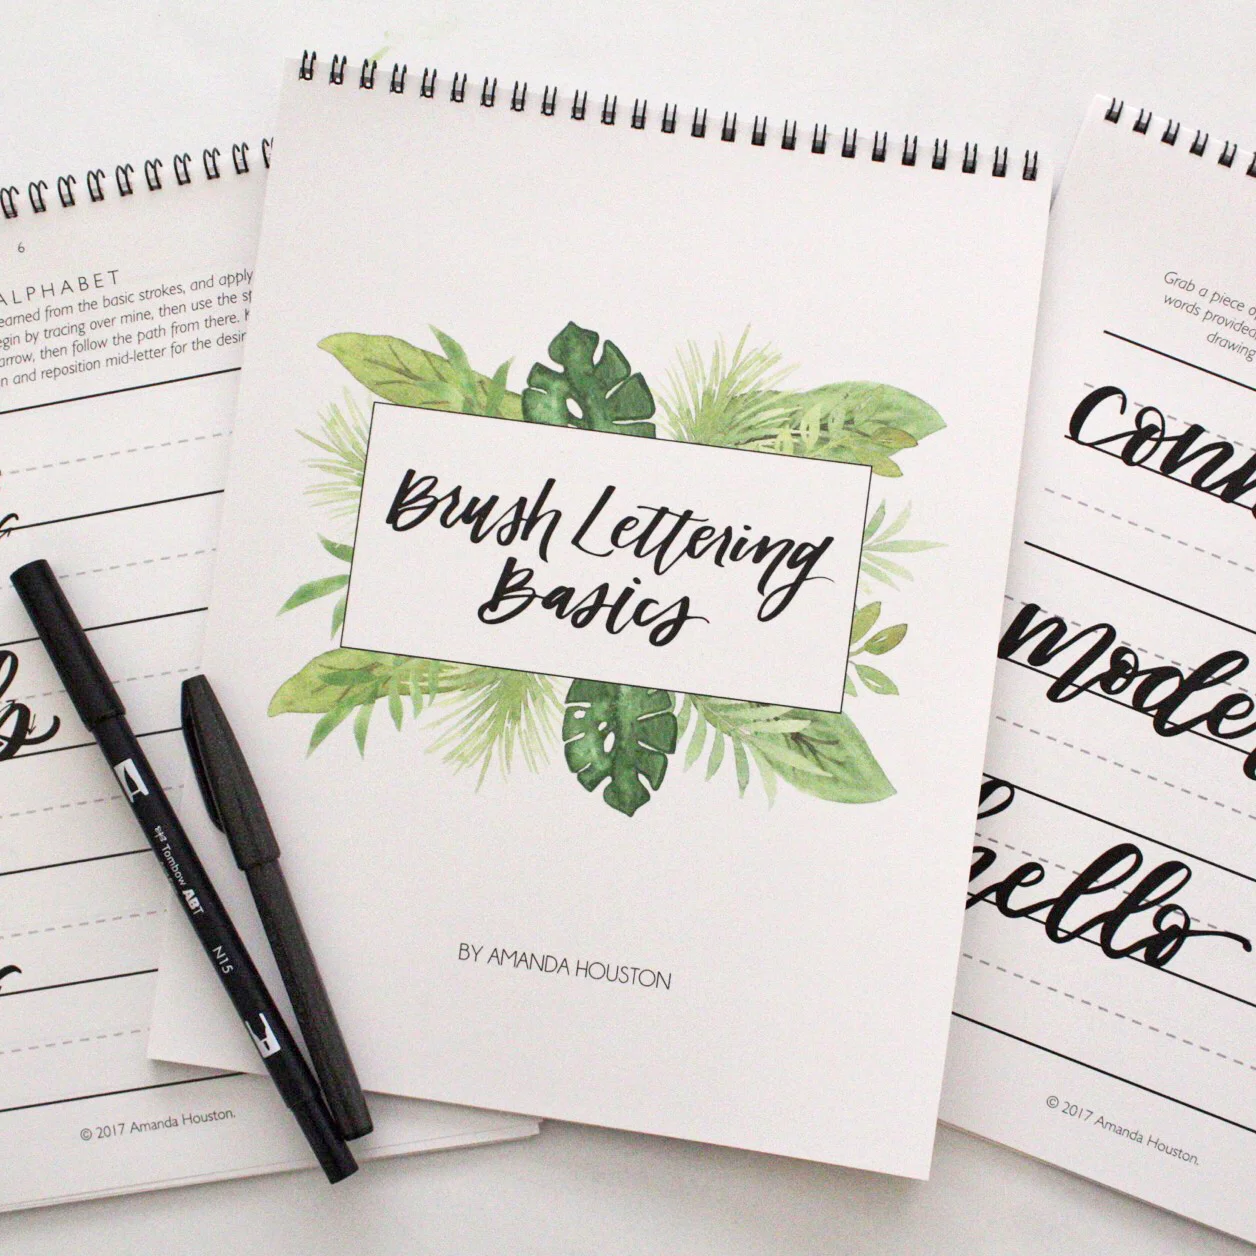 6
ALPHABET
earned from the basic strokes, and apply
egin by tracing over mine, then use the
arrow, then follow the path from there.
n and reposition mid-letter for the desir
b
© 2017 Amanda Houston.
Tombow ABT
N15
Brush Lettering
Basics
BY AMANDA HOUSTON
Grab a piece
words provided
drawing
conn
moder
hello
© 2017 Amanda Houston.